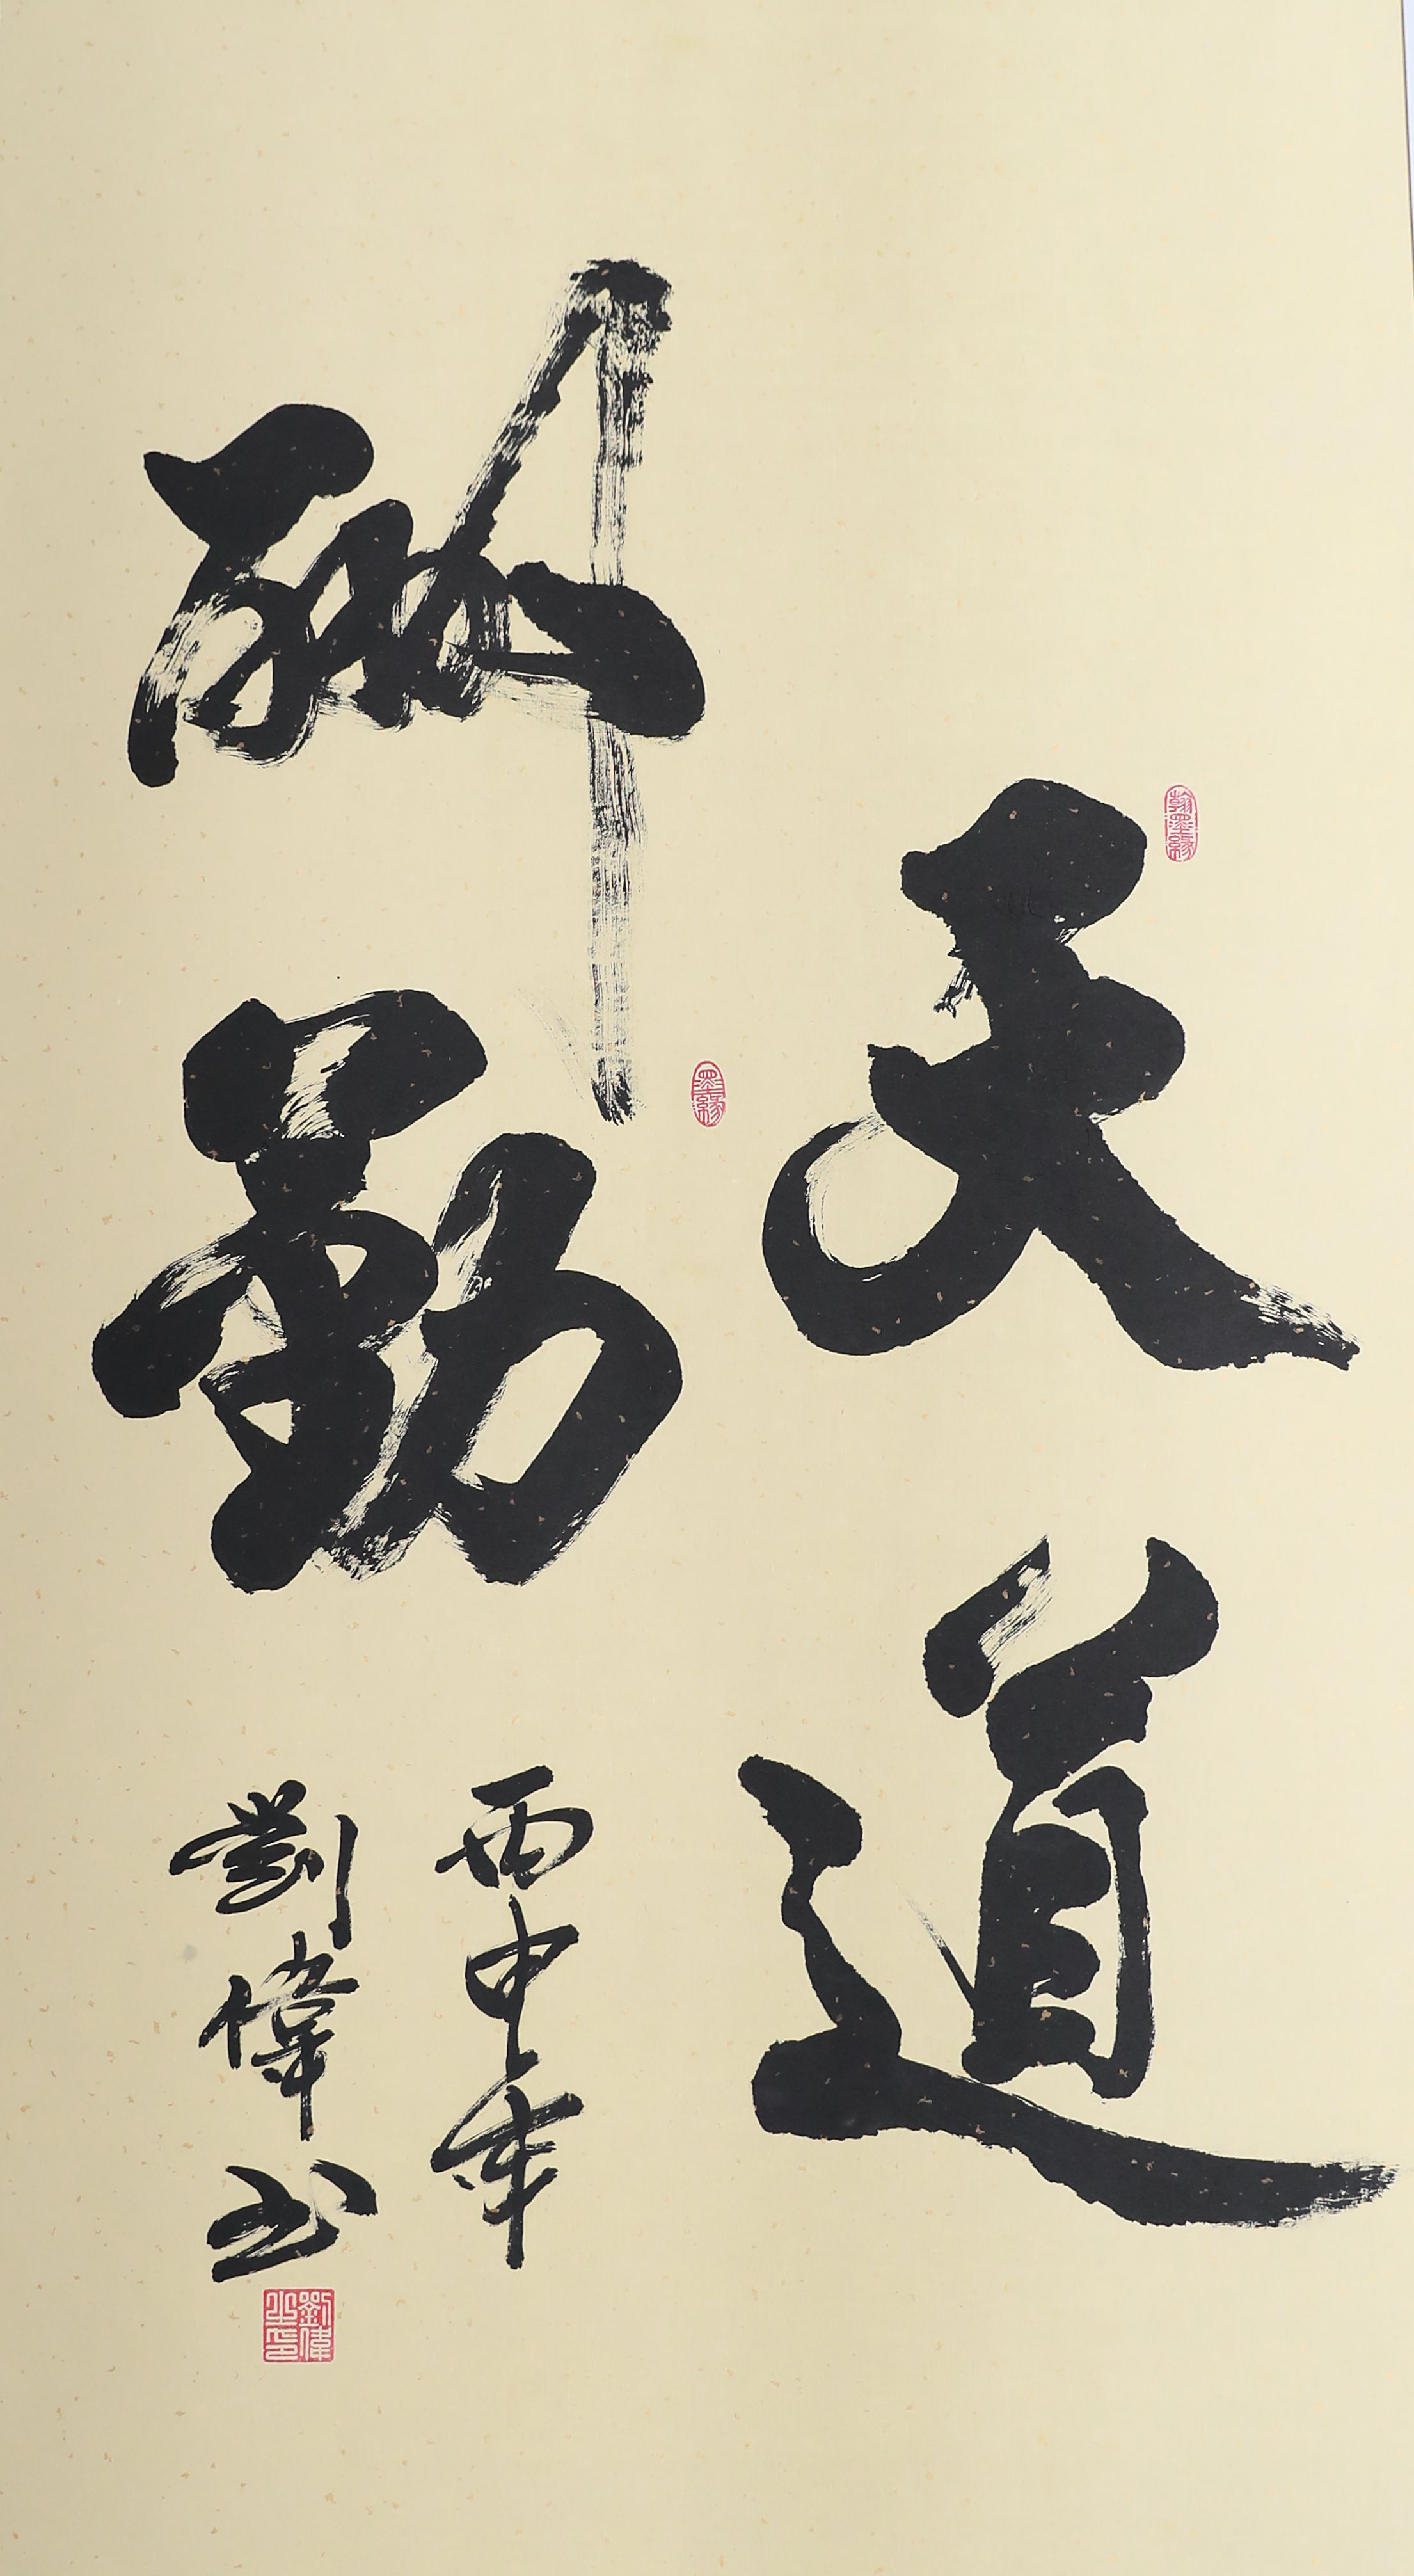 天道
酬勤
丙申年
劉偉书
翰墨緣
墨緣
劉偉之印